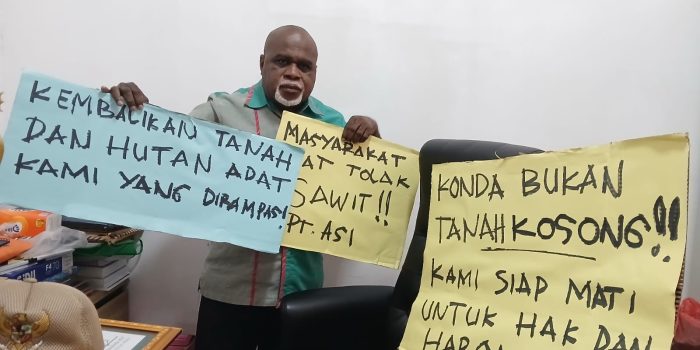 KEMBALIKAN TANAH
DAN HUTAN ADAT
KAMI YANG DIRAMPAS!
MASYARAKAT
AT TOLAK
SAWIT!!
PT. ASI
KONDA BUKAN
TANAH KOSONG!!
KAMI SIAP MATI
UNTUK HAK DAN